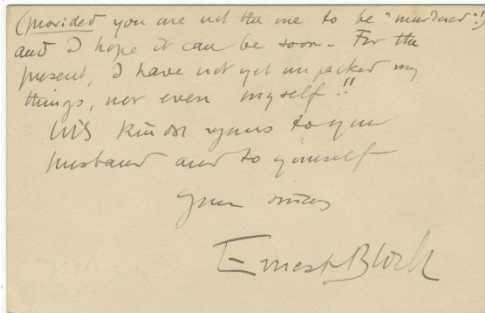 (provided you are not the one to be "murdered"!)
and I hope it can be soon - For the
present, I have not yet unpacked my
things, nor even myself!!
With kindest regards to your
husband and to yourself
Yours sincerely
Ernest Bloch